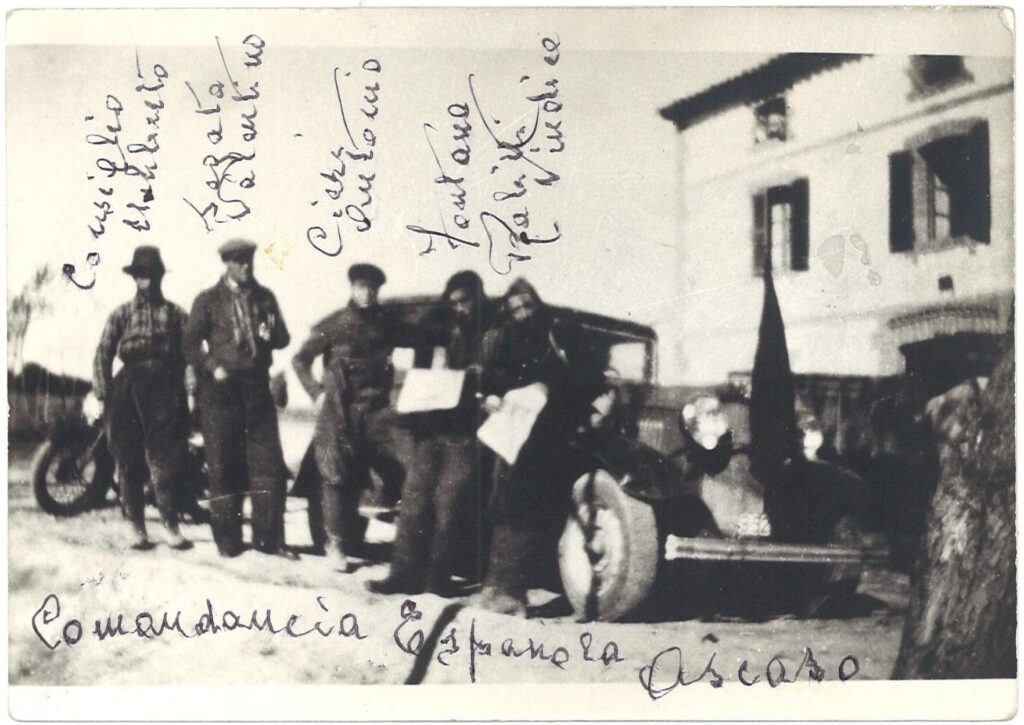 Consiglio
Umberto
Segata
Valentino
Cieri
Antonio
Fontana
Rabitti
Vindice
Comandancia Española Ascaso